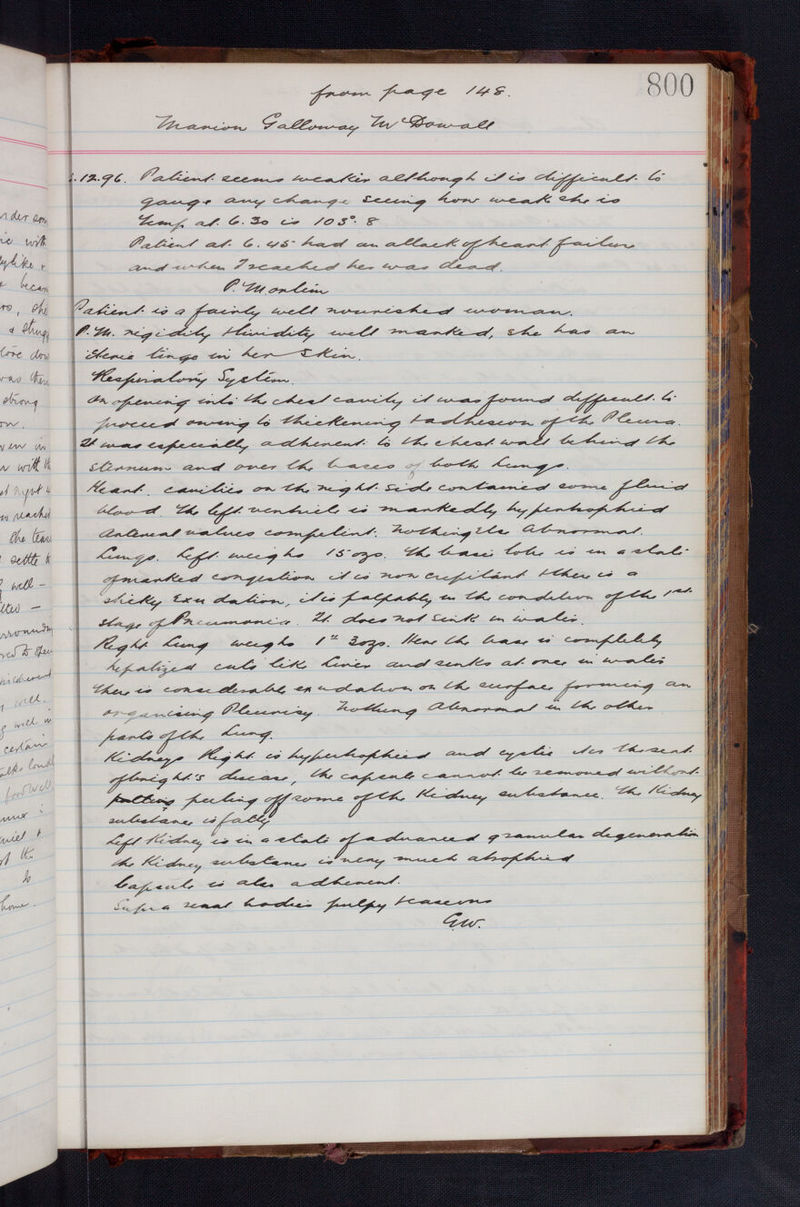 800
from page 148.
Marion Galloway McDowall
.12.96. Patient seems weaker although it is difficult to
gauge any change seeing how weak she is
Temp at 6.30 is 103°.8
Patient at 6.45 had an attack of heart failure
and when I reached her was dead.
P. Mortem
Patient is a fairly well nourished woman.
P.M. rigidity & lividity well marked, she has an
icteric tinge in her skin.
Respiratory System.
On opening into the chest cavity it was found difficult to
proceed owing to thickening & adhesion of the Pleura.
It was especially adherent to the chest wall behind the
sternum and over the bases of both lungs.
Heart. cavities on the right side contained some fluid
blood. The left ventricle is markedly hypertrophied
Arterial valves competent. Nothing else abnormal.
Lungs. Left weighs 15 ozs. The base lobe is in a state
of marked congestion it is non crepitant & there is a
sticky exudation, it is palpably in the condition of the 1st
stage of Pneumonia. It does not sink in water.
Right Lung weighs 1lb 3ozs. Here the base is completely
hepatized cuts like liver and sinks at once in water
There is considerable exudation on the surface forming an
organising Pleurisy. Nothing abnormal in the other
parts of the lung.
Kidneys Right is hypertrophied and cystic
of bright's disease, the capsule cannot be removed without
peeling off some of the Kidney substance. The Kidney
substance is fatty
Left Kidney is in a state of advanced granular degeneration
the Kidney substance is very much atrophied
Capsule is also adherent.
Supra renal bodies pulpy & caseous
G.W.